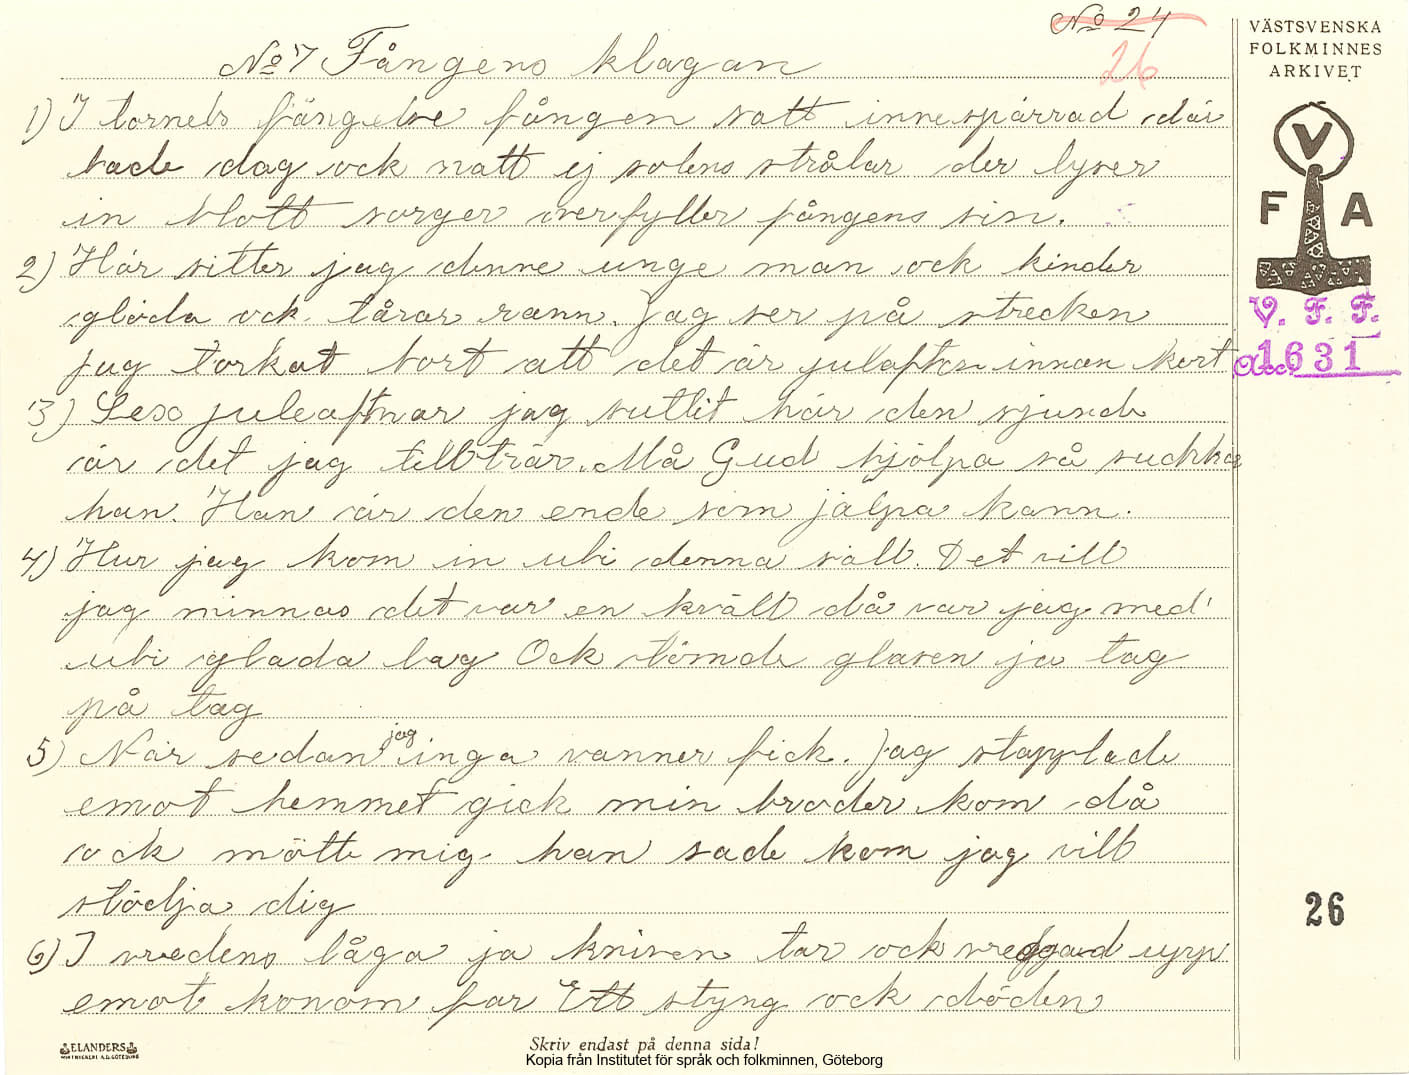 No 24
26
No 7 Fångens klagan
1) I tornets fängelse fången satt innespärrad där
bade dag ock natt ej solens strålar der lyser
in blott sorger överfyller fångens sin.
2) Här sitter jag denne unge man ock kinder
glöda ock tårar rann. Jag ser på strecken
jag torkat bort att det är julafton innan kort
3) Sexs juleaftnar jag suttit här den sjunde
är det jag tillträr. Må Gud hjölpa så suckkar
han. Han är den ende som jälpa kann.
4) Hur jag kom in uti denna säll. Det vill
jag minnas det var en kväll då var jag med
uti glada lag Ock tömde glasen ja tag
på tag
5) När sedan jag inga vänner fick. Jag stapplade
emot hemmet gick min broder kom då
ock mötte mig. han sade kom jag vill
stödja dig
6) I vredens låga ja kniven tar ock vred upp
emot honom far Ett styng ock döden
VÄSTSVENSKA
FOLKMINNES
ARKIVET
V
F A
V. F. F.
Acc. 1631
26
ELANDERS
Skriv endast på denna sida!
Kopia från Institutet för språk och folkminnen, Göteborg